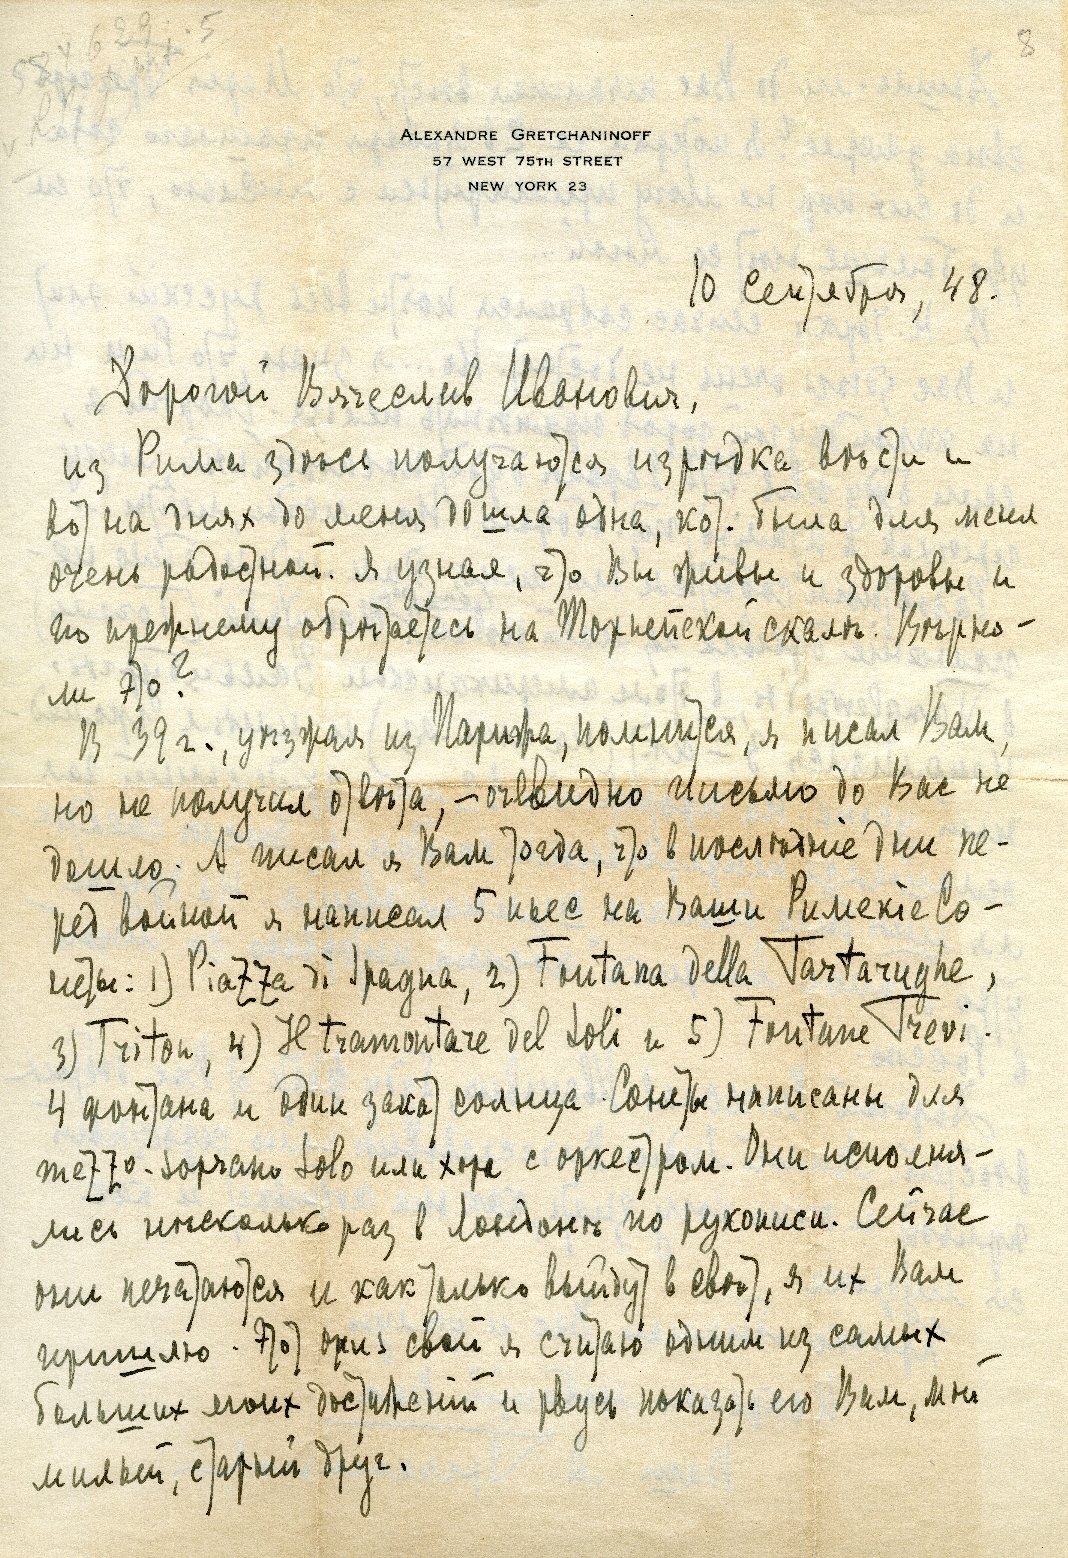 8
ALEXANDRE GRETCHANINOFF
57 WEST 75TH STREET
NEW YORK 23
10 Сентября, 48.
Дорогой Вячеслав Иванович,
из Рима здѣсь получаются изрѣдка вѣсти и
вот на днях до меня дошла одна, кот. была для меня
очень радостной. Я узнал, что Вы живы и здоровы и
по прежнему обрѣтаетесь на Тарпейской скалѣ. Вѣрно-
ли это?
В 39 г., уѣзжая из Парижа, помнится, я писал Вам,
но не получил отвѣта, – очевидно письмо до Вас не
дошло. А писал я Вам тогда, что в послѣдніе дни пе-
ред войной я написал 5 пьес на Ваши Римскіе Со-
неты: 1) Piazza di Spagna, 2) Fontana della Tartarughe,
3) Triton, 4) Il tramontare del Soli и 5) Fontane Trevi.
4 фонтана и один закат солнца. Сонеты написаны для
mezzo-soprano solo или хора с оркестром. Они исполня-
лись нѣсколько раз в Лондонѣ по рукописи. Сейчас
они печатаются и как только выйдут в свѣт, я их Вам
пришлю. Этот opus свой я считаю одним из самых
больших моих достиженій и рвусь показать его Вам, мой
милый, старый друг.